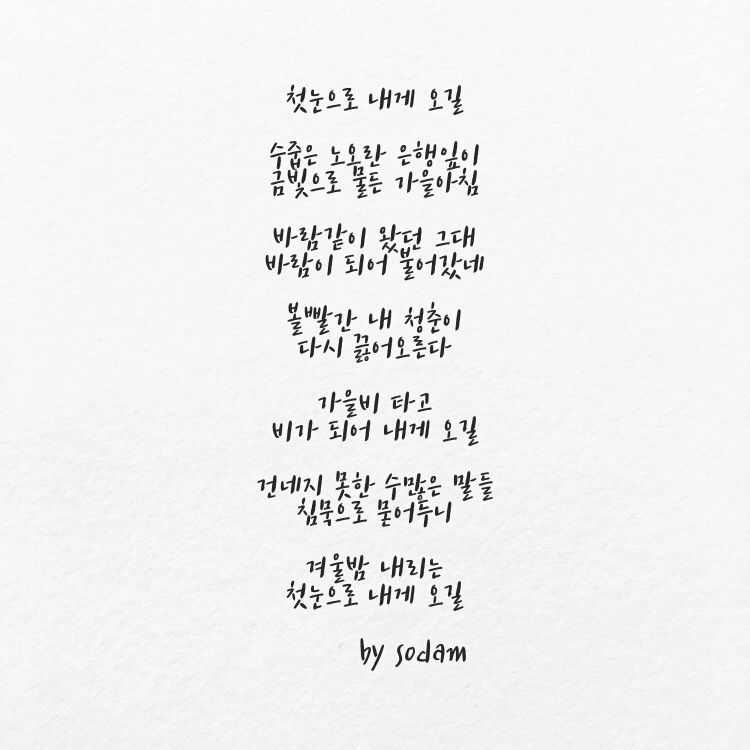 첫눈으로 내게 오길
수줍은 노오란 은행잎이
금빛으로 물든 가을아침
바람같이 왔던 그대
바람이 되어 불어갔네
볼빨간 내 청춘이
다시 끓어오른다
가을비 타고
비가 되어 내게 오길
건네지 못한 수많은 말들
침묵으로 묻어두니
겨울밤 내리는
첫눈으로 내게 오길
by sodam